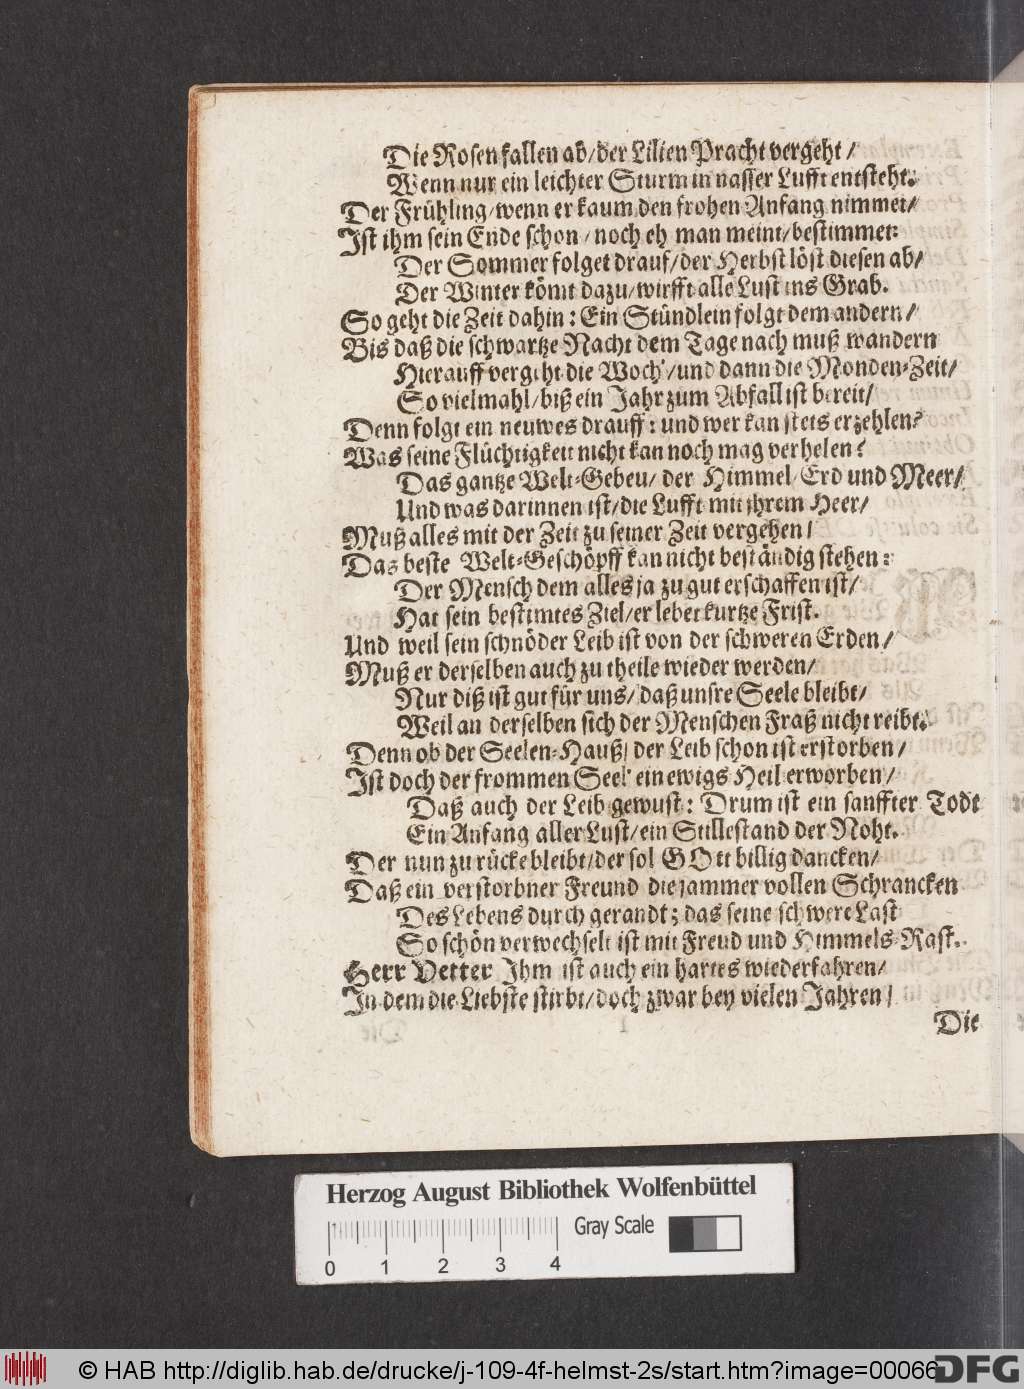 Die Rosen fallen ab/der Lilien Pracht vergeht/
Wenn nur ein leichter Sturm in nasser Lufft entsteht.
Der Frühling/wenn er kaum den frohen Anfang nimmet/
Ist ihm sein Ende schon/noch eh man meint/bestimmet:
Der Sommer folget drauf/der Herbst löst diesen ab/
Der Winter kömt dazu/wirfft alle Lust ins Grab.
So geht die Zeit dahin: Ein Stündlein folgt dem andern/
Bis daß die schwartze Nacht dem Tage nach muß wandern
Hierauff vergeht die Woch'/und dann die Monden-Zeit/
So vielmahl/biß ein Jahr zum Abfall ist bereit/
Denn folgt ein neuwes drauff: und wer kan stets erzehlen?
Was seine Flüchtigkeit nicht kan noch mag verhelen?
Das gantze Welt-Gebeu/ der Himmel/Erd und Meer/
Und was darinnen ist/die Lufft mit ihrem Heer/
Muß alles mit der Zeit zu seiner Zeit vergehen/
Das beste Welt-Geschöpff kan nicht beständig stehen:
Der Mensch dem alles ja zu gut erschaffen ist/
Hat sein bestimtes Ziel/er lebet kurtze Frist.
Und weil sein schnöder Leib ist von der schweren Erden/
Muß er derselben auch zu theile wieder werden/
Nur diß ist gut für uns/daß unsre Seele bleibt/
Weil an derselben sich der Menschen Fraß nicht reibt.
Denn ob der Seelen-Hauß/ der Leib schon ist erstorben/
Ist doch der frommen Seel' ein ewigs Heil erworben/
Daß auch der Leib gewust: Drum ist ein sanffter Todt
Ein Anfang aller Lust/ein Stillestand der Noht.
Der nun zu rücke bleibt/der sol GOtt billig dancken/
Daß ein verstorbner Freund die jammer vollen Schrancken
Des Lebens durch gerandt; das seine schwere Last
So schön verwechselt ist mit Freud und Himmels-Rast.
Herr Vetter Ihm ist auch ein hartes wiederfahren/
In dem die Liebste stirbt/doch zwar bey vielen Jahren/
Die
Herzog August Bibliothek Wolfenbüttel
Gray Scale
0 1 2 3 4
© HAB http://diglib.hab.de/drucke/j-109-4f-helmst-2s/start.htm?image=00066
DFG